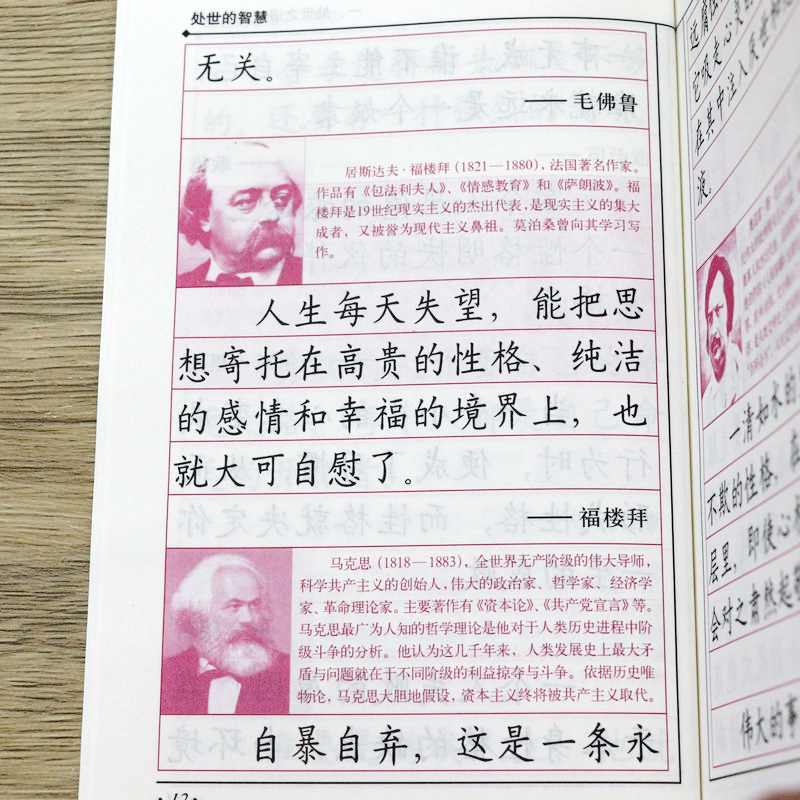 处世的智慧
无关。
——毛佛鲁
居斯达夫·福楼拜（1821—1880），法国著名作家。
作品有《包法利夫人》、《情感教育》和《萨朗波》。福
楼拜是19世纪现实主义的杰出代表，是现实主义的集大
成者，又被誉为现代主义鼻祖。莫泊桑曾向其学习写
作。
人生每天失望，能把思
想寄托在高贵的性格、纯洁
的感情和幸福的境界上，也
就大可自慰了。
——福楼拜
马克思（1818—1883），全世界无产阶级的伟大导师，
科学共产主义的创始人，伟大的政治家、哲学家、经济学
家、革命理论家。主要著作有《资本论》、《共产党宣言》等。
马克思最广为人知的哲学理论是他对于人类历史进程中阶
级斗争的分析。他认为这几千年来，人类发展史上最大矛
盾与问题就在于不同阶级的利益掠夺与斗争。依据历史唯
物论，马克思大胆地假设，资本主义终将被共产主义取代。
自暴自弃，这是一条永
它吸走心灵的
在其中注入厌世和
液。
一清如水的
不欺的性格，在
层里，即使心
会对之肃然起
伟大的事